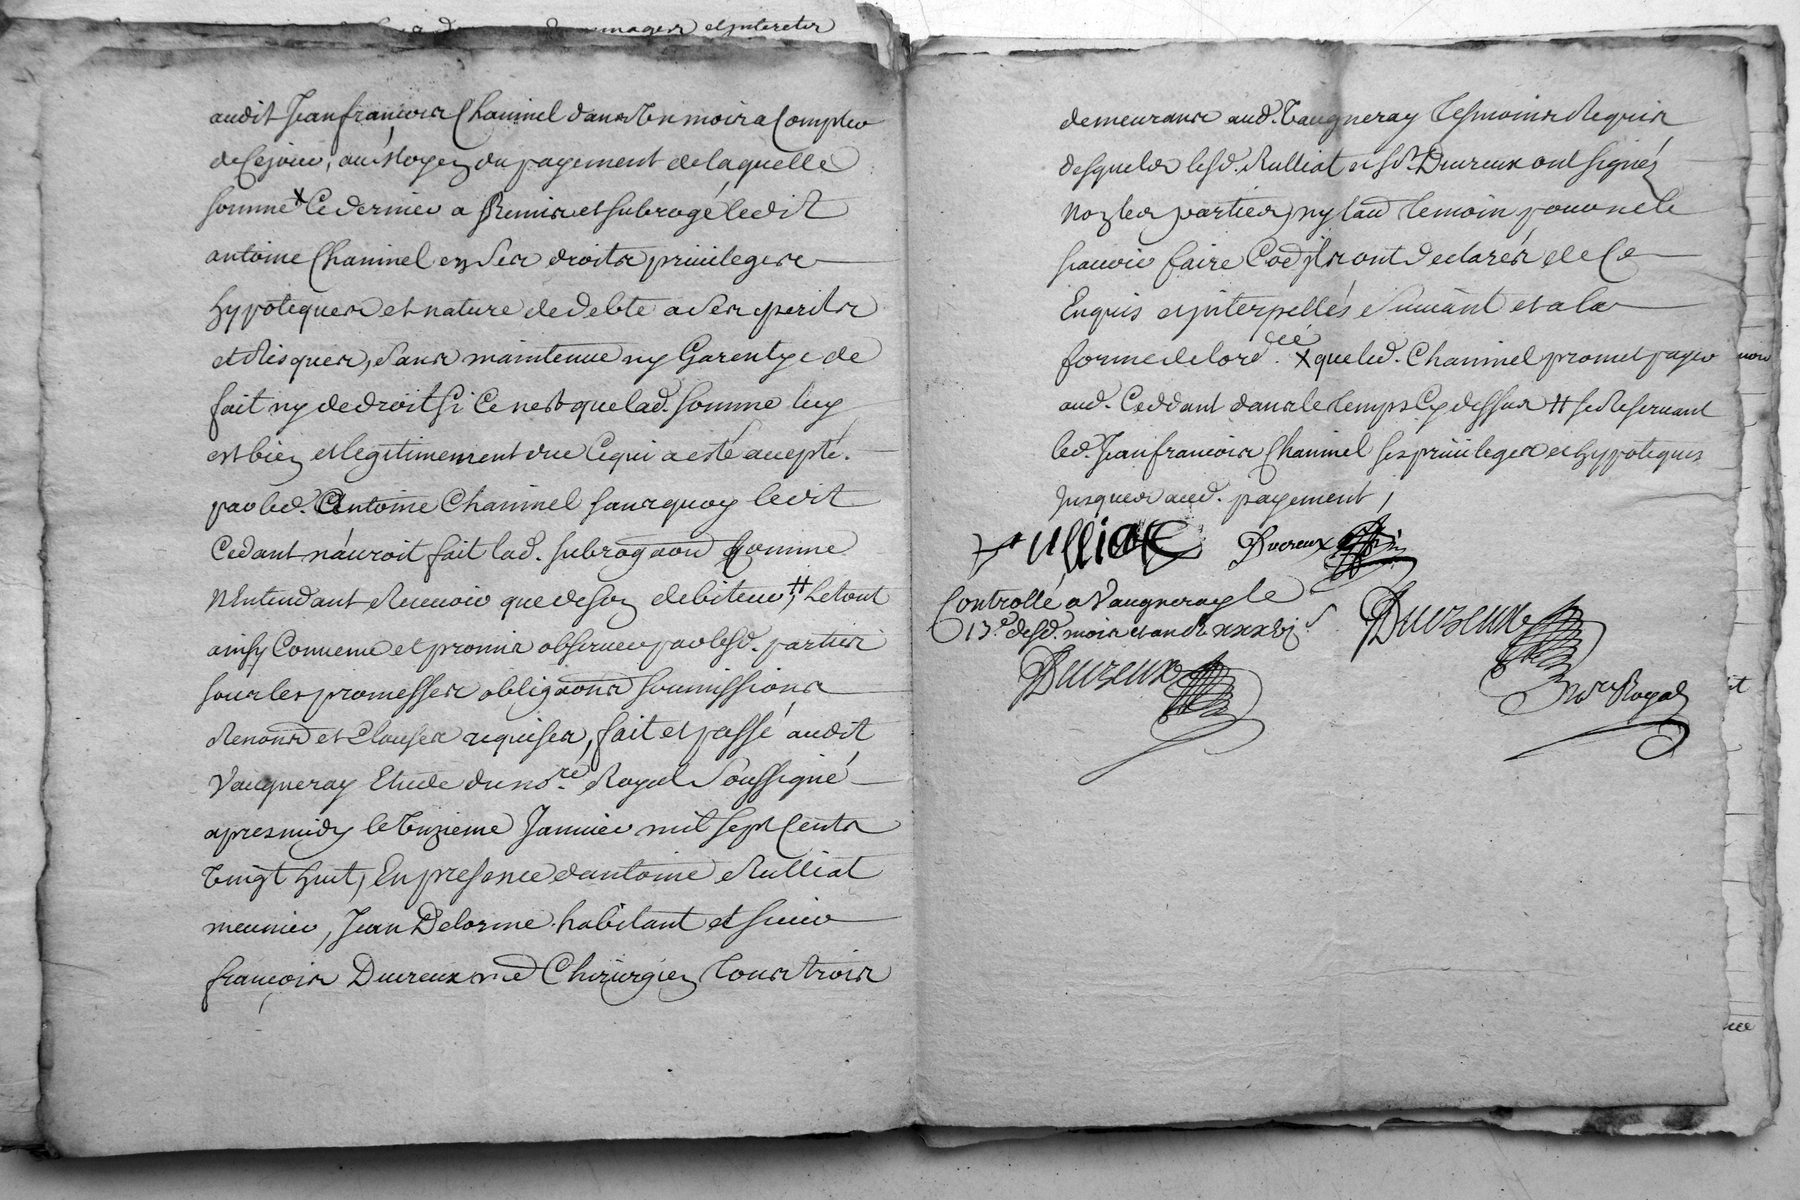 mages et interetz
audit Jean françois Chaninel dans un mois a Compter
de Ce jour, au Moyen du payement de laquelle
somme x Ce dernier a Remis et subrogé ledit
antoine Chaninel en Ses droits privileges
hypoteques et nature de debte a Ses perils
et Risques, Sans maintenue ny Garentye de
fait ny de droit Si Ce n'est que lad. somme luy
est bien et legitimement due Ce qui a esté accepté
par led. Antoine Chaninel sans quoy ledit
Cedant n'auroit fait lad. subrogaon Comme
N'Entendant Recevoir que de son debiteur, # Le tout
ainsy Convenu et promis observer par lesd. parties
sous les promesses obligaons soumissions
Renons et Clauses requises, fait et passé audit
Vaugneray Etude du nore. Royal Soussigné
apres midy le unzieme Janvier mil sept Cents
vingt huit, En presence d'antoine Rulliat
meunier, Jean Delorme habitant et sieur
françois Ducreux me Chirurgien tous trois
demeurans aud. Vaugneray tesmoins Requis
desquels lesd. Rulliat et Sr. Ducreux ont signés
Non les parties ny l'au temoin pour ne le
sçavoir faire Coe ils ont declarés de Ce
Enquis et interpellés Suivant et a la
forme de l'ord cée. x que led. Chaninel promet payer
aud. Ceddant dans le temps Cy dessus # se Reservant
led. Jean francois Chaninel ses privileges et hypoteques
Jusques aud. payement /
Rulliat Ducreux
Controllé a Vaugneray le
13e. desd. mois et an
Ducreux
Ducreux
Nore Royal